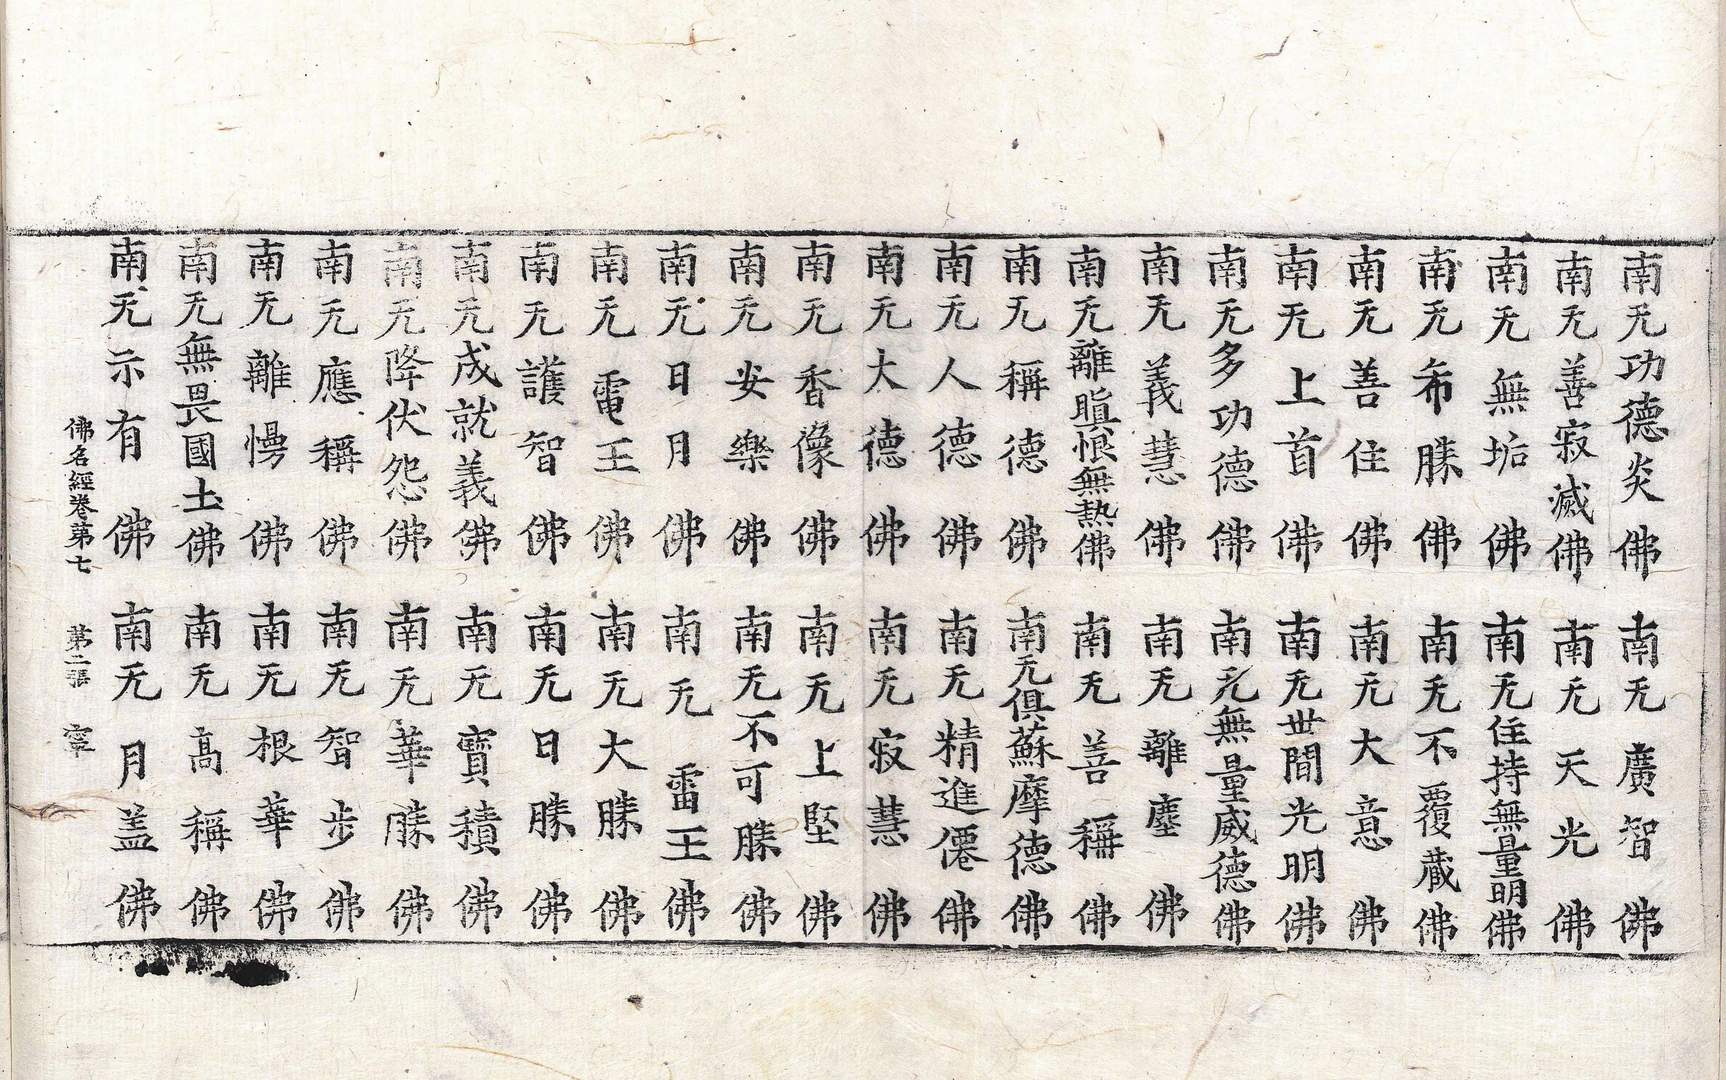 南无功德炎佛　南无廣智佛
南无善寂滅佛　南无天光佛
南无無垢佛　南无住持無量明佛
南无希勝佛　南无不覆藏佛
南无善住佛　南无大意佛
南无上首佛　南无世間光明佛
南无多功德佛　南无無量威德佛
南无義慧佛　南无離塵佛
南无離瞋恨無熱佛　南无善稱佛
南无稱德佛　南无俱蘇摩德佛
南无人德佛　南无精進僊佛
南无大德佛　南无寂慧佛
南无香像佛　南无上堅佛
南无安樂佛　南无不可勝佛
南无日月佛　南无雷王佛
南无電王佛　南无大勝佛
南无護智佛　南无日勝佛
南无成就義佛　南无寶積佛
南无降伏怨佛　南无華勝佛
南无應稱佛　南无智步佛
南无離慢佛　南无根華佛
南无無畏國土佛　南无高稱佛
南无示有佛　南无月盖佛
佛名經卷第七　第二張